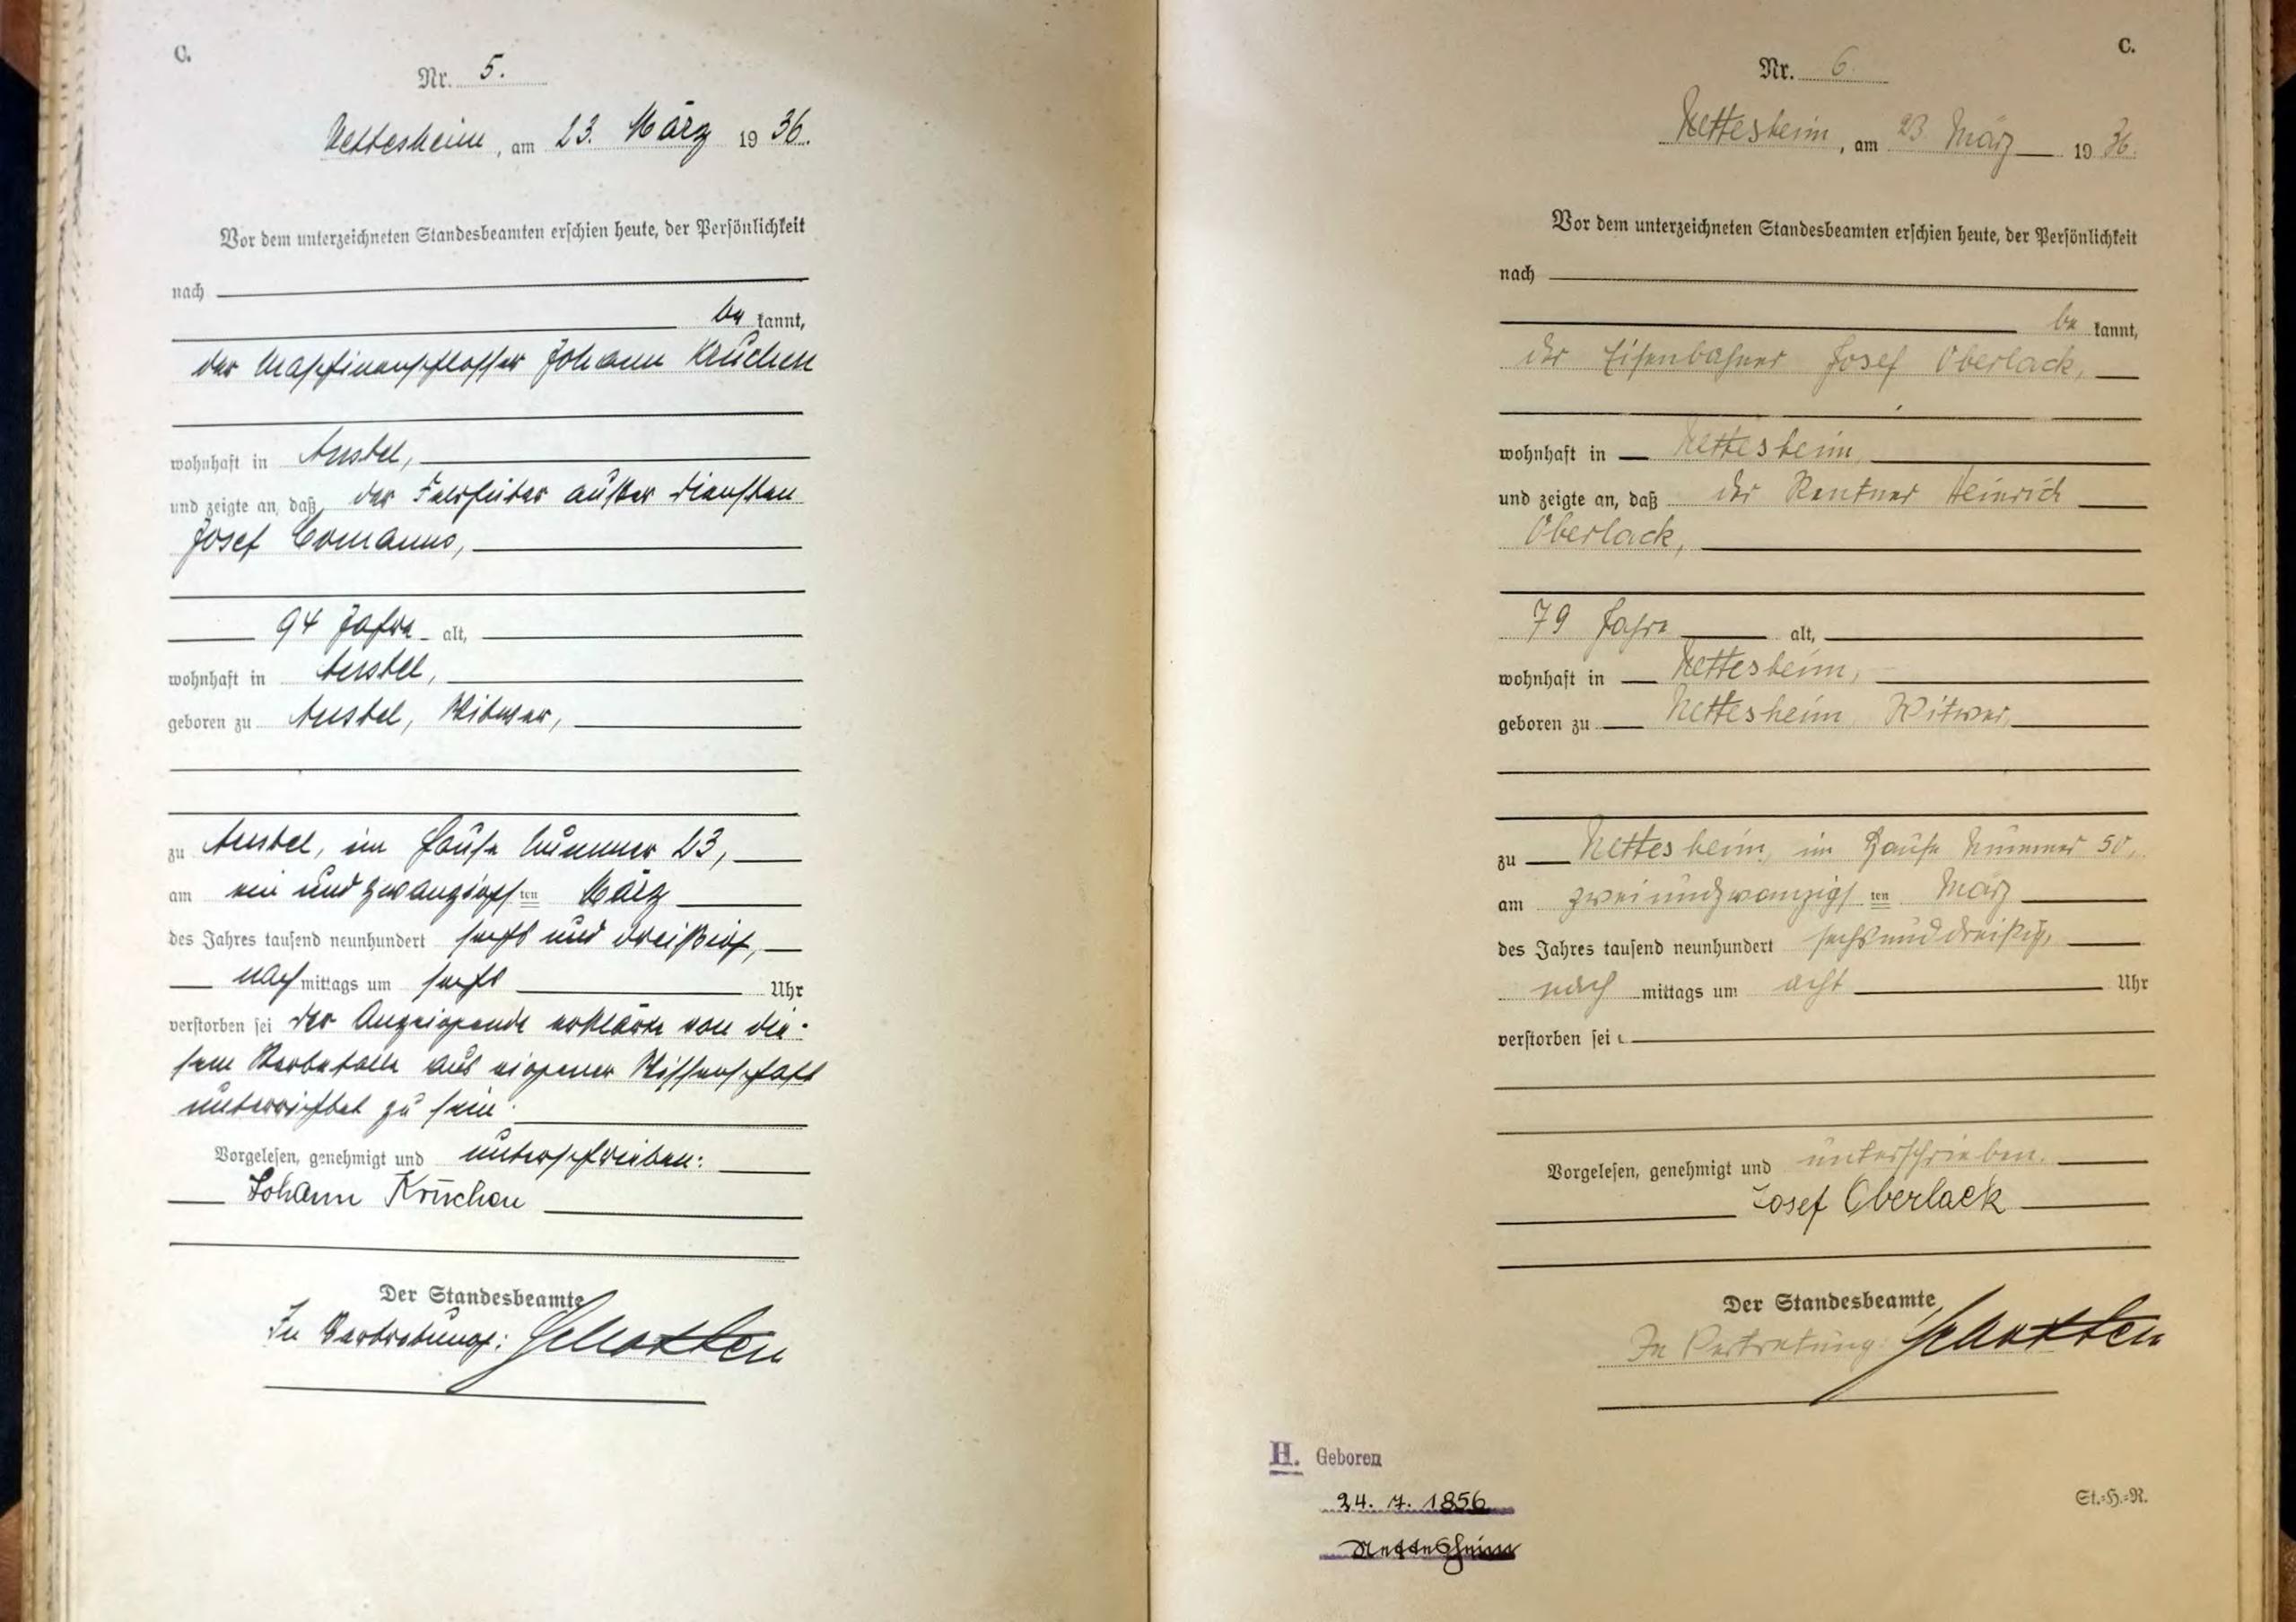 C.
Nr. 5.
Nettesheim, am 23. März 1936.
Vor dem unterzeichneten Standesbeamten erschien heute, der Persönlichkeit
nach
be kannt,
der Maschinenschlosser Johann Krüchen
wohnhaft in Anstel,
und zeigte an, daß der außer Diensten
Josef Cremanns,
94 Jahre alt,
wohnhaft in Anstel,
geboren zu Anstel, Witwer,
zu Anstel, im Hause Nummer 23,
am ein und zwanzigsten März
des Jahres tausend neunhundert sechs und dreißig,
nachmittags um sechs Uhr
verstorben sei der Anzeigende erklärte von die-
sem Sterbefalle aus eigener Wissenschaft
unterrichtet zu sein.
Vorgelesen, genehmigt und unterschrieben:
Johann Krüchen
Der Standesbeamte
In Vertretung: Schotten
C.
Nr. 6.
Nettesheim, am 23 März 1936.
Vor dem unterzeichneten Standesbeamten erschien heute, der Persönlichkeit
nach
be kannt,
der Eisenbahner Josef Oberlack,
wohnhaft in Nettesheim,
und zeigte an, daß der Rentner Heinrich
Oberlack,
79 Jahre alt,
wohnhaft in Nettesheim,
geboren zu Nettesheim Witwer,
zu Nettesheim, im Hause Nummer 50,
am zweiundzwanzigsten März
des Jahres tausend neunhundert sechsunddreißig,
nach mittags um acht Uhr
verstorben sei
Vorgelesen, genehmigt und unterschrieben.
Josef Oberlack
Der Standesbeamte
In Vertretung: Schotten
H. Geboren
24. 7. 1856
Nettesheim
St.=H.=R.